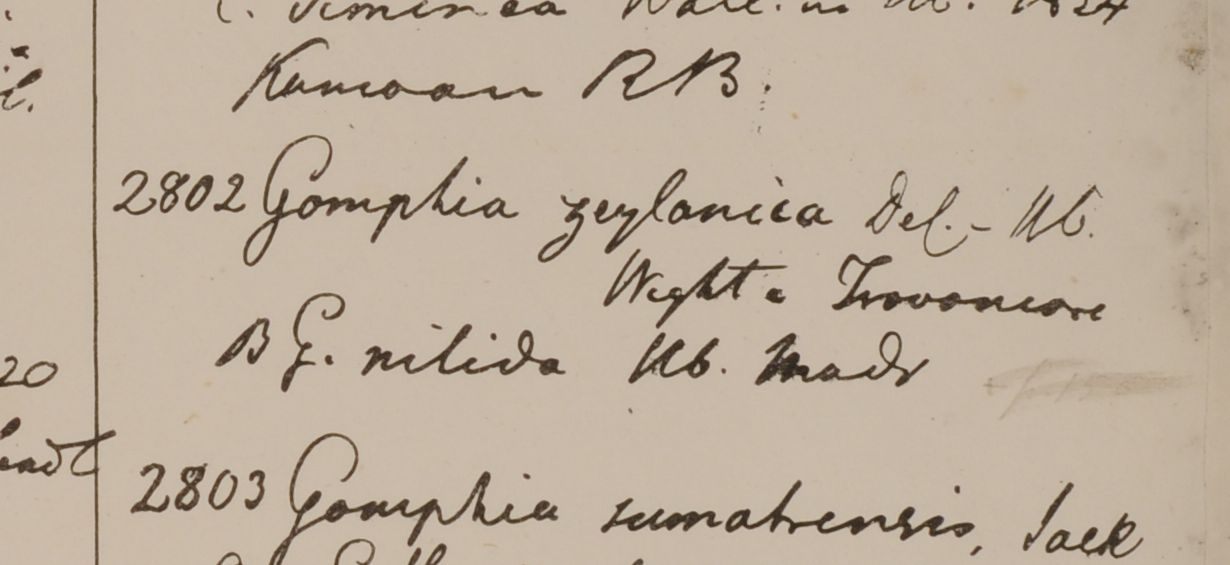 Wall. in Hb. 1824
Kamoan RB.
2802 Gomphia zeylanica Del. - Hb.
Wight e Travancore
B G. nitida Hb. Madr
20
2803 Gomphia sumatrensis, Jack